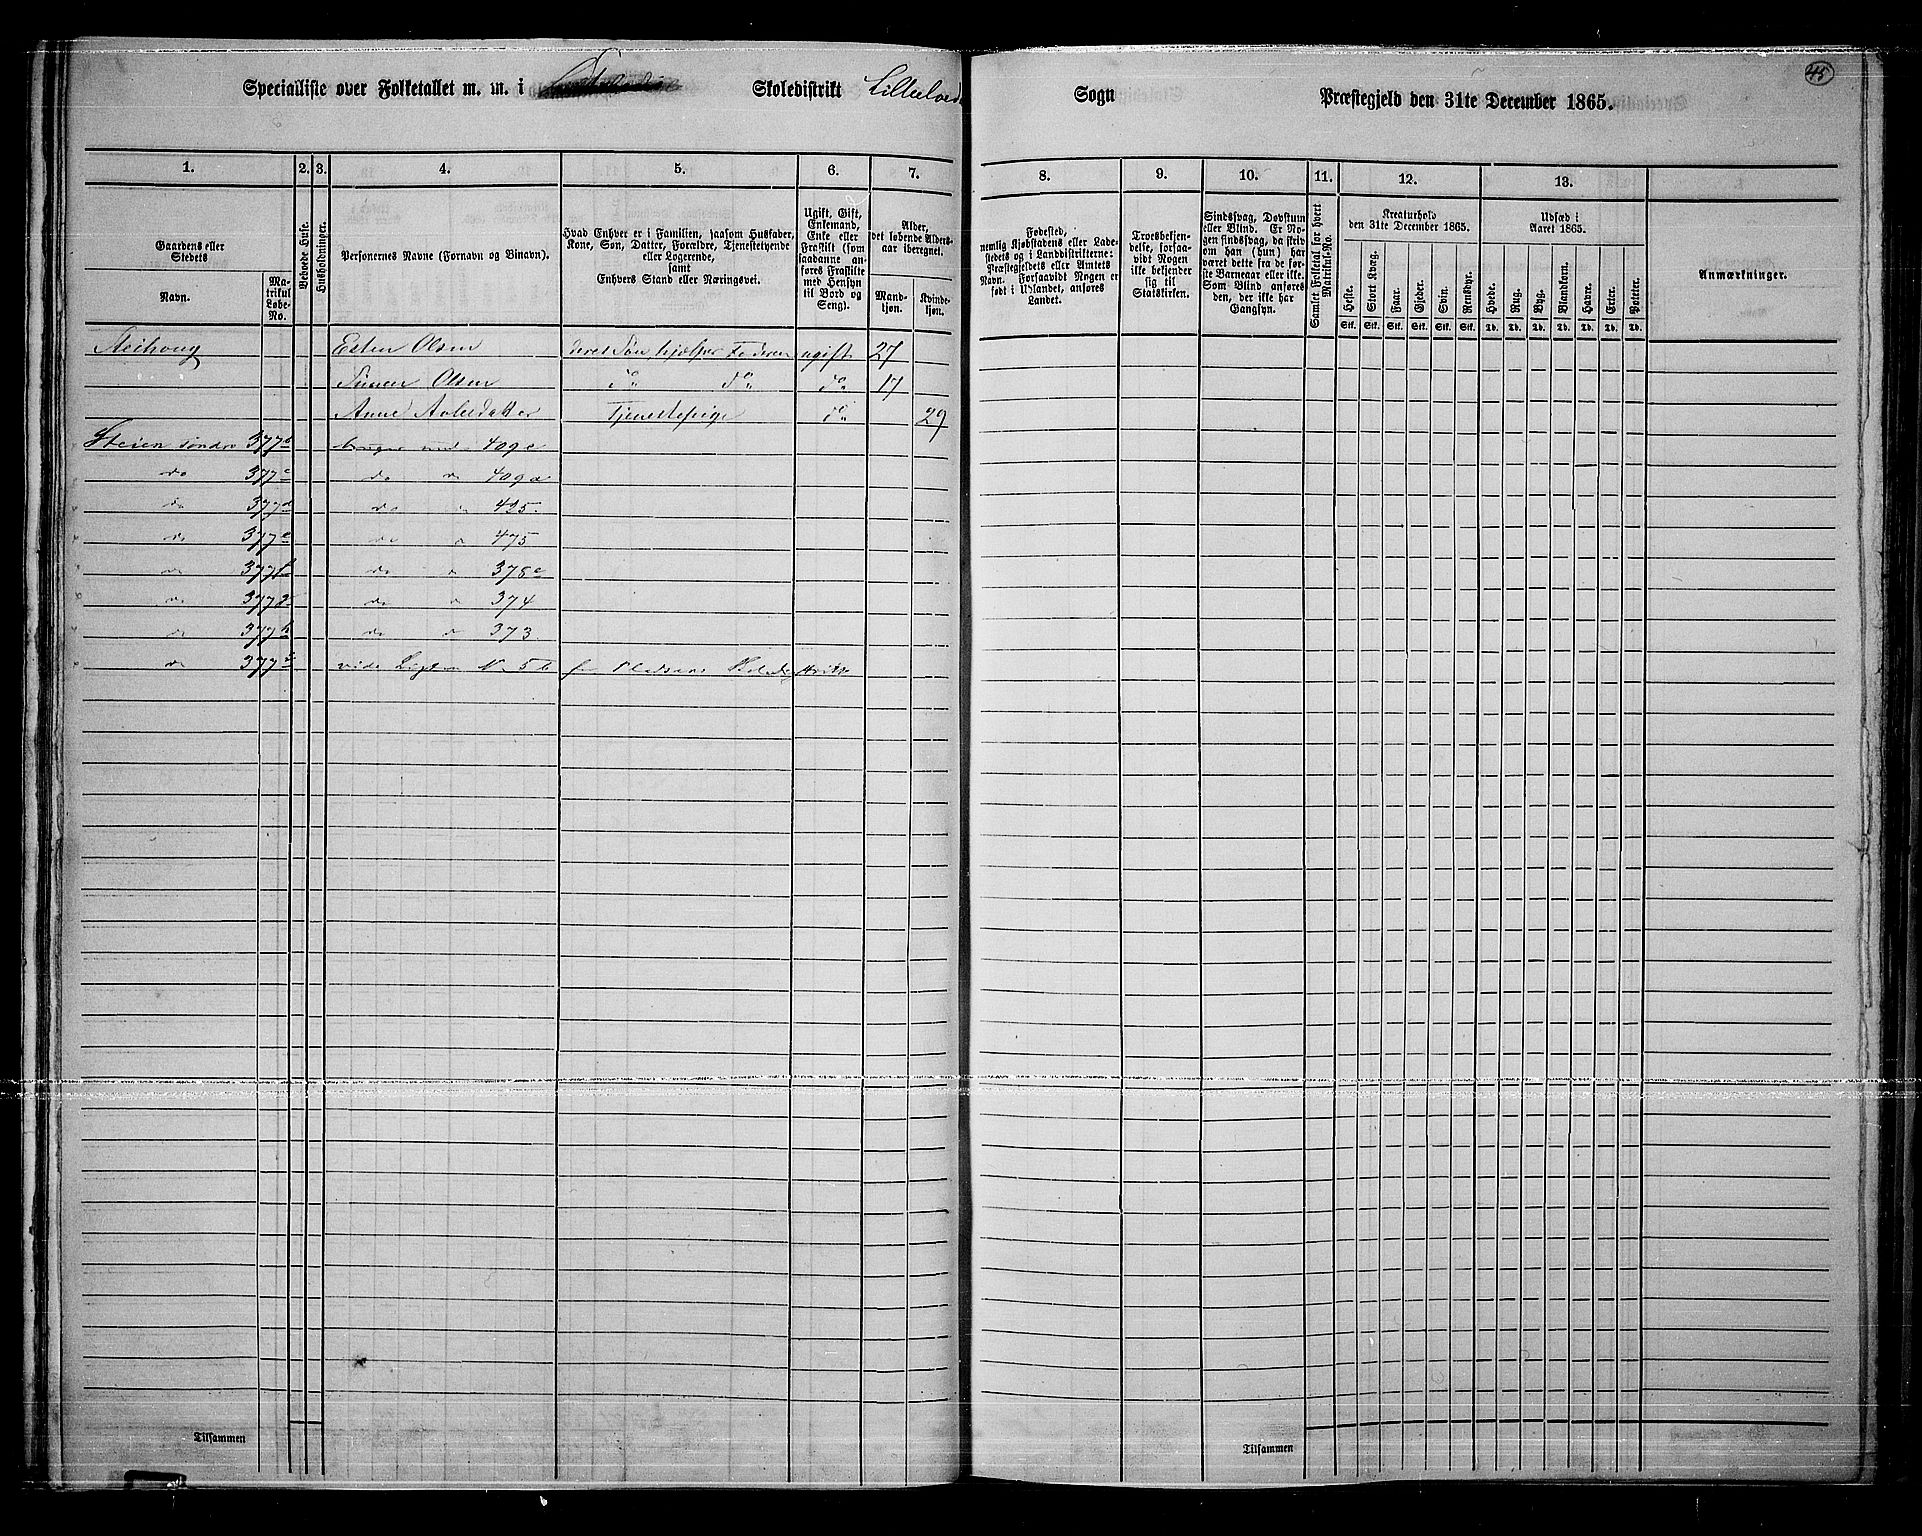 Specialliste over Folketallet m. m. i Skoledistrikt Lilleelved Sogn Præstegjeld den 31te December 1865.
45
1. 2. 3. 4. 5. 6. 7. 8. 9. 10. 11. 12. 13.
Gaardens eller Stedets
Navn.
Matrikul Løbe-No.
Beboede Huse.
Husholdninger.
Personernes Navne (Fornavn og Binavn).
Hvad Enhver er i Familien, saasom Husfader,
Kone, Søn, Datter, Forældre, Tjenestetyende
eller Logerende,
samt
Enhvers Stand eller Næringsvei.
Ugift, Gift,
Enkemand,
Enke eller
Fraskilt (som
saadanne an-
føres Fraskilte
med Hensyn
til Bord og
Seng).
Alder,
det løbende Alders-
aar iberegnet.
Mand-
kjøn.
Kvinde-
kjøn.
Fødested,
nemlig Kjøbstadens eller Lade-
stedets og i Landdistrikterne:
Præstegjeldets eller Amtets
Navn. Forsaavidt Nogen er
født i Udlandet, anføres
Landet.
Troesbekjen-
delse, forsaa-
vidt Nogen
ikke bekjender
sig til
Statskirken.
Sindssvag, Døvstum
eller Blind. Er No-
gen sindssvag, da skriv
om han (hun) har
været dette fra de før-
ste Barneaar eller ikke.
Som Blind anføres
den, der ikke har
Gangsyn.
Samlet Folketal for hvert
Matrikul-No.
Kreaturhold
den 31te December 1865.
Heste. Stort Kvæg. Faar. Gjeder. Svin. Rensdyr.
Stk. Stk. Stk. Stk. Stk. Stk.
Udsæd i
Aaret 1865.
Hvede. Rug. Byg. Blandkorn. Havre. Erter. Poteter.
Td. Td. Td. Td. Td. Td. Td.
Anmærkninger.
Esten Olsen deres Søn hjælper Faderen ugift 27
Simen Olsen do do do 17
Anne Tjenestepige do 29
Steien søndre 377b bruges under 409c
do 377c do 409a
do 377d do 425
do 377e do 475
do 377f do 378c
do 377g do 374
do 377h do 373
do 377i vide No 5b for
Tilsammen
Tilsammen